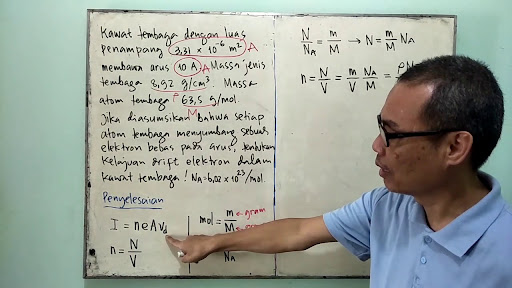 Kawat tembaga dengan luas
penampang 3,31 × 10⁻⁶ m² A
membawa arus 10 A. Massa jenis
tembaga 8,92 g/cm³. Massa
atom tembaga ρ 63,5 g/mol.
M
Jika diasumsikan bahwa setiap
atom tembaga menyumbang sebuah
elektron bebas pada arus, tentukan
kelajuan drift elektron dalam
kawat tembaga! NA=6,02 × 10²³/mol.
Penyelesaian
I = neAvd
n = N/V
mol = m/M ← gram
NA
N/NA = m/M → N = m/M NA
n = N/V = m/V NA/M = ρ